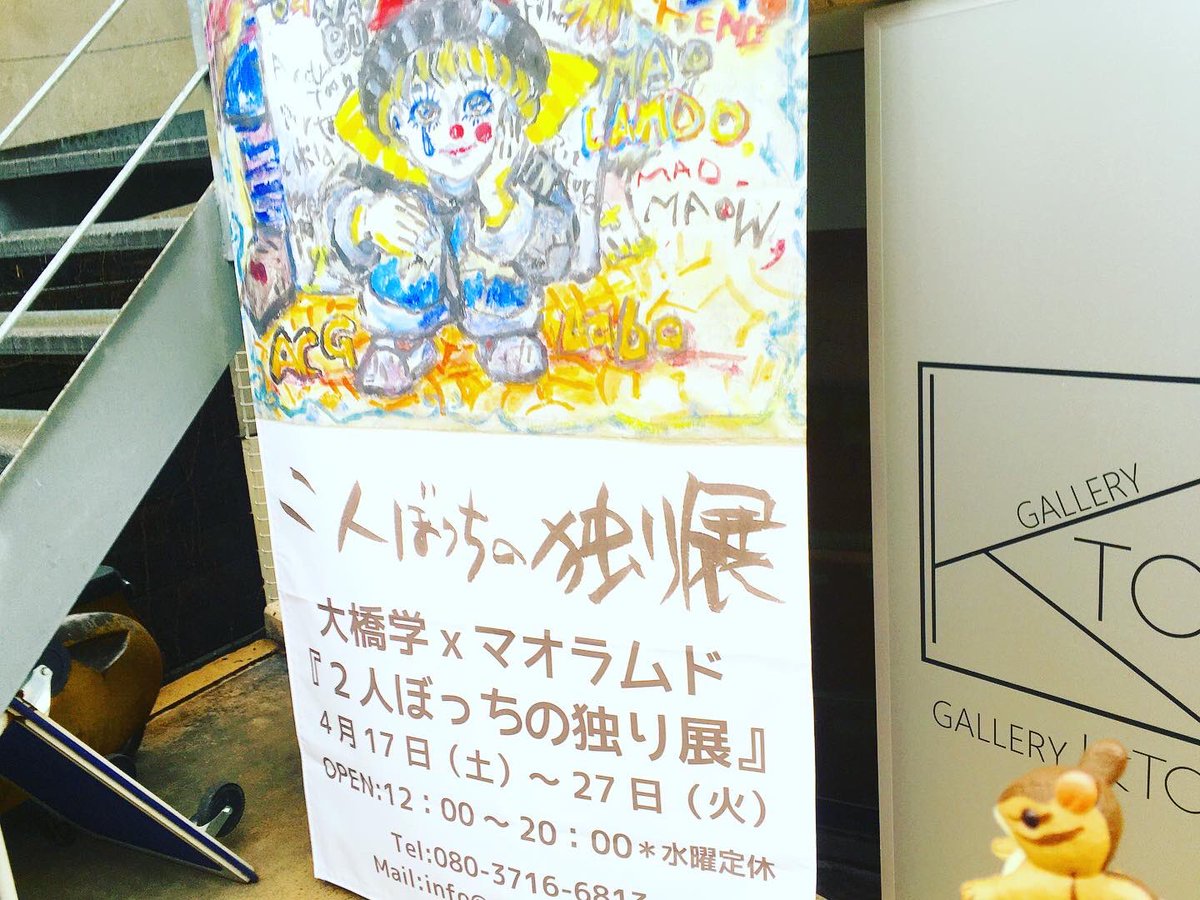 MAO
LAMDO.
MAO-
MAOW,
ArG
Labo
二人ぼっちの独り展
大橋学xマオラムド
『2人ぼっちの独り展』
4月17日（土）～27日（火）
OPEN:12：00～20：00＊水曜定休
Tel:080-3716-6813
Mail:info@
GALLERY
TO
GALLERY